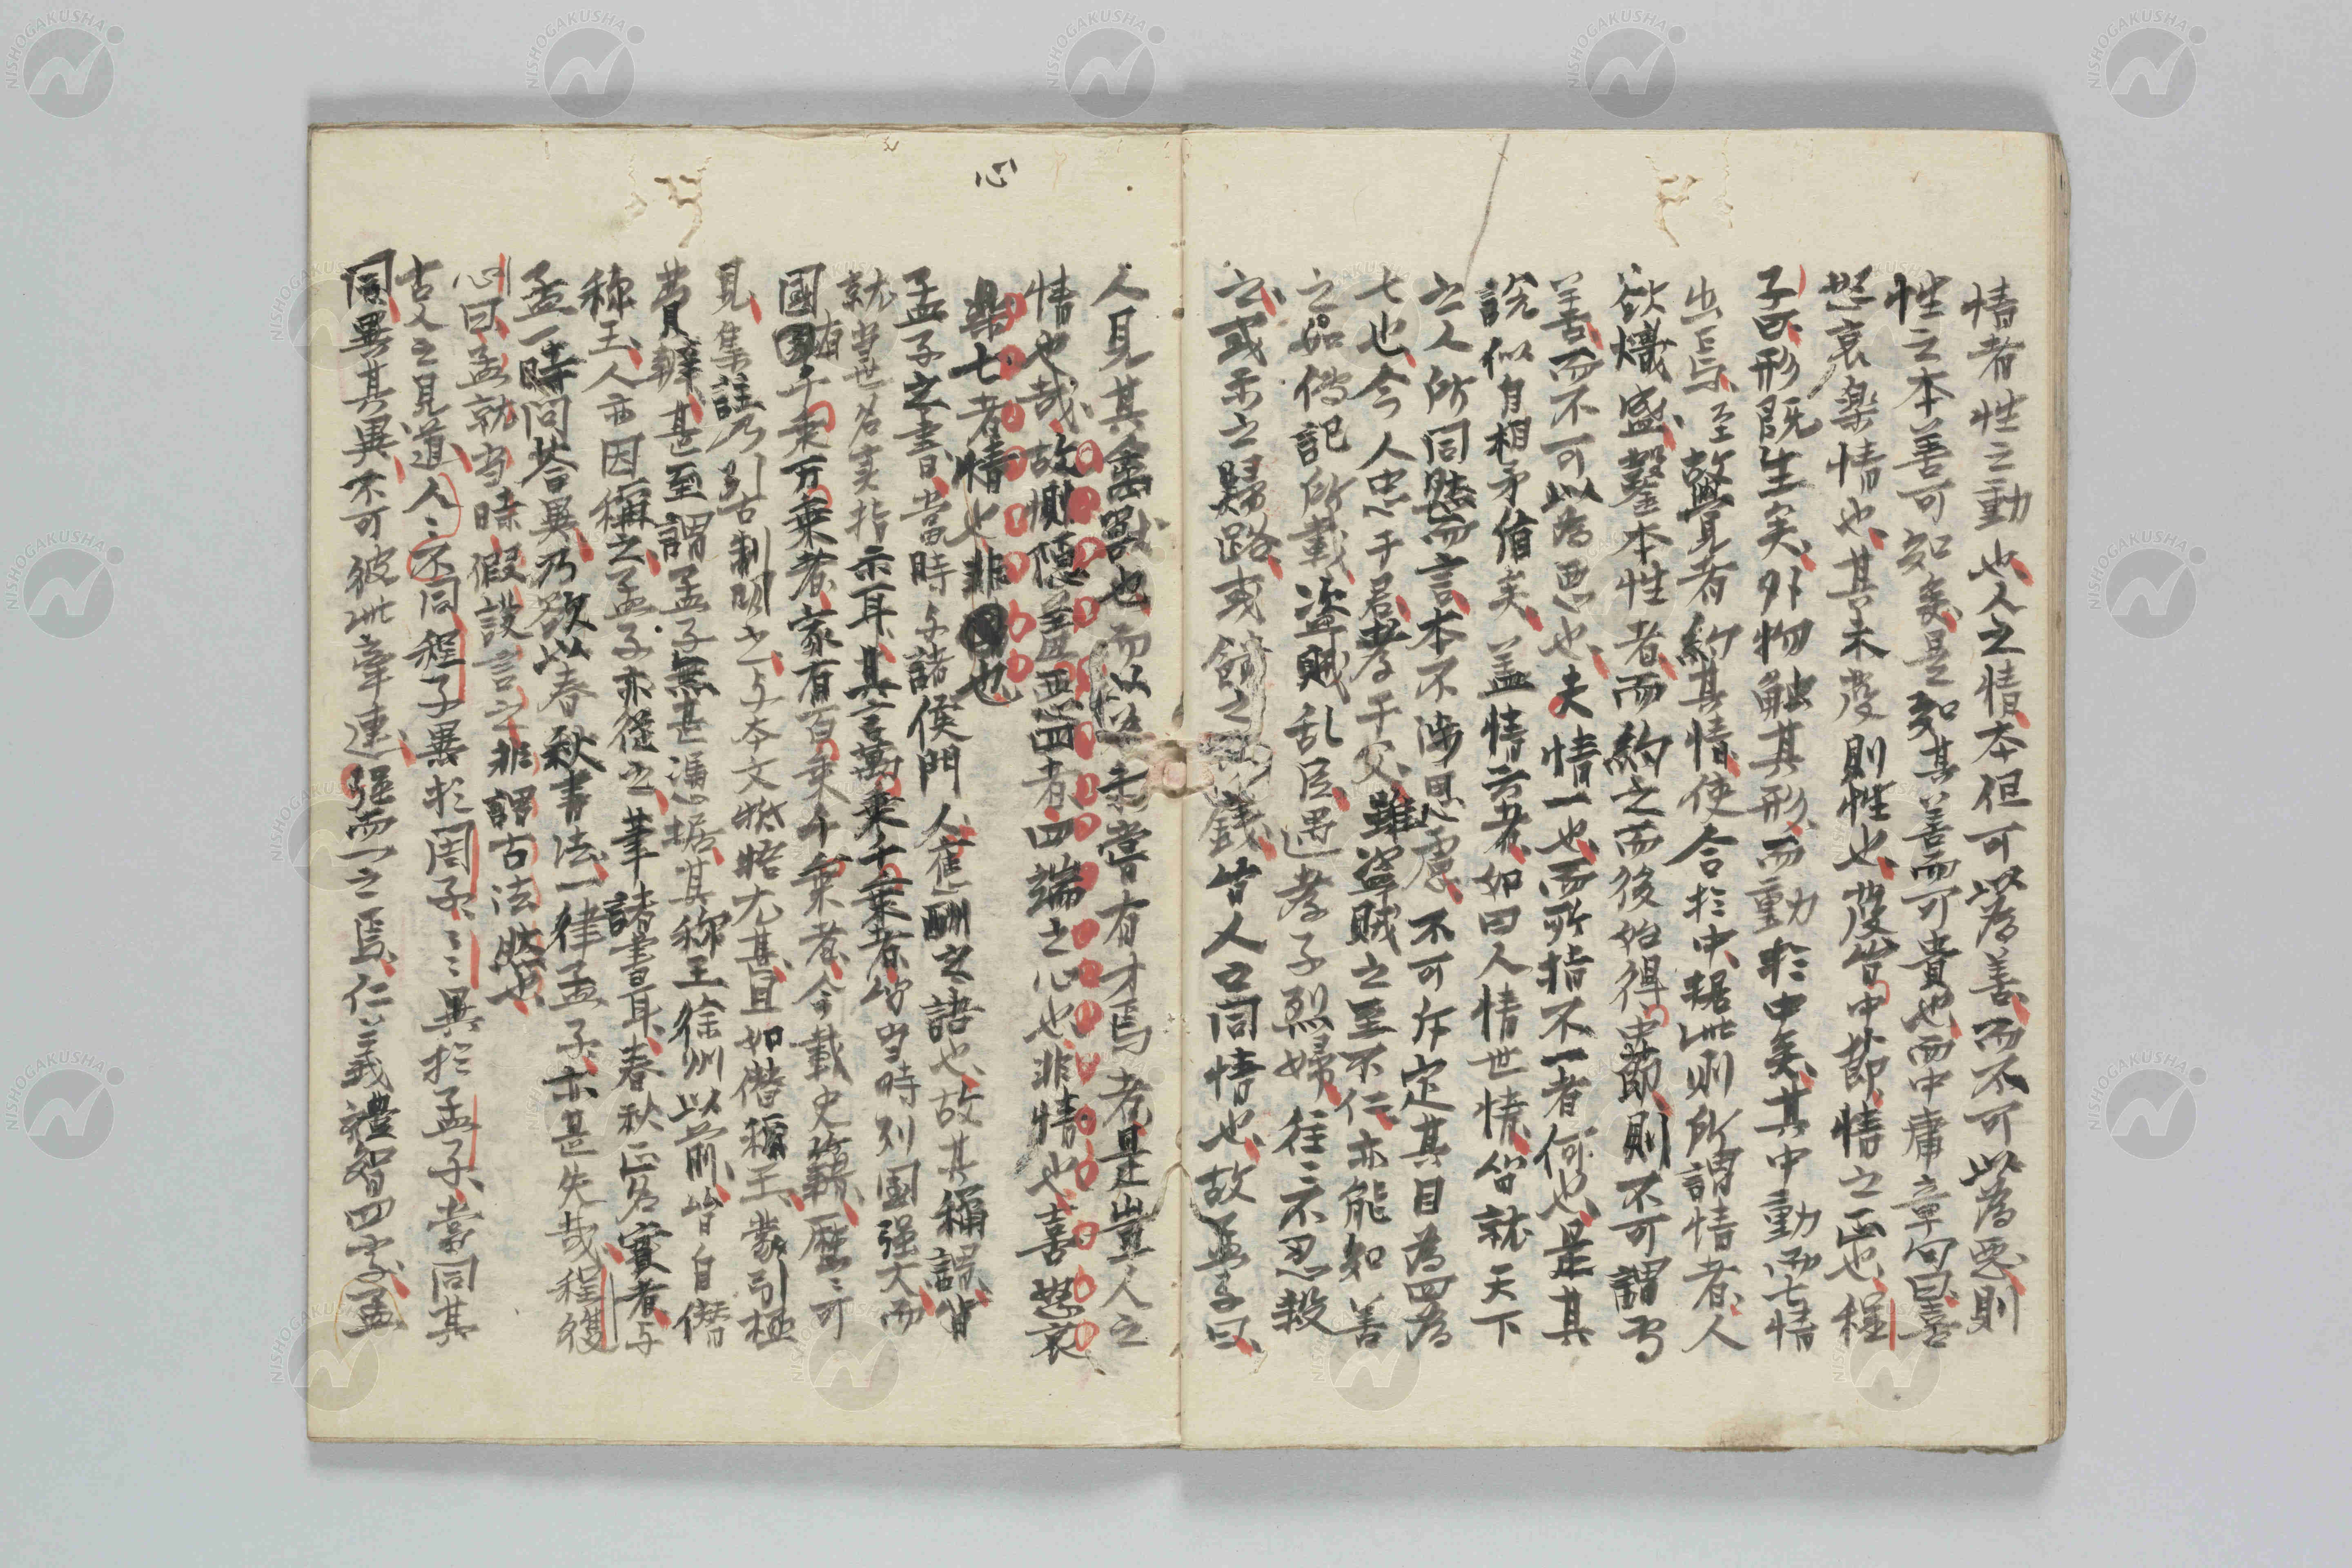 情者性之動也人之情本但可以為善而不可以為惡則
性之本善可知矣是知其善而可貴也而中庸章句曰喜
怒哀楽情也其未發則性也發皆中節情之正也程
子曰形既生矣外物触其形而動於中矣其中動而七情
出焉至故覺者約其情使合於中拠此則所謂情者人
欲熾盛鑿本性者而約之而後始得中節則不可謂為
善而不可以為悪也夫情一也而所指不一者何也是其
説似自相矛盾矣盖情云者如曰人情世情皆就天下
之人所同然而言本不渉思慮不可斥定其目為四為
七也今人忠于君孝于父雖盗賊之至不仁亦能知善
之如傳記所載盗賊乱臣遇孝子烈婦往々不忍殺
之或示之歸路或餽之錢皆人之同情也故孟子曰
人見其禽獸也而以為未嘗有才焉者是豈人之
情也哉故惻隠羞悪四者四端之心也非情也喜怒哀
楽七者情也非也
心
孟子之書當時与諸侯門人應酬之語也故其稱謂皆
就当世名実指示耳其言萬乗千乗者皆当時列国强大而
國有千乗万乗者家有百乗千乗者今載史籍歴々可
見集註乃引古制明之与本文牴牾尤甚且如僭稱王蒙引極
費辨甚至謂孟子無甚憑据其称王徐州以前皆自僭
称王人亦因稱之孟子亦從之筆諸書耳春秋正名實者与
孟一時問荅異乃欲以春秋書法一律孟子亦甚失哉程復
心曰孟就当時假設言之非謂古法然也
古人之見道人々不同程子異於周子々々異於孟子當同其
同異其異不可彼此牽連强而一之焉仁義禮智四字孟